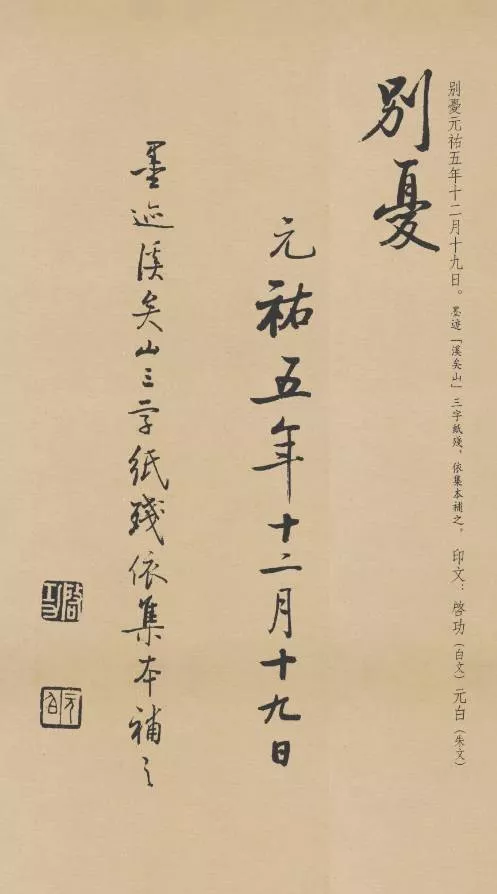 别憂元祐五年十二月十九日。墨迹「溪矣山」三字紙殘，依集本補之，印文：啓功（白文）元白（朱文）
别憂
元祐五年十二月十九日
墨迹溪矣山三字紙殘依集本補之
啓功
元白